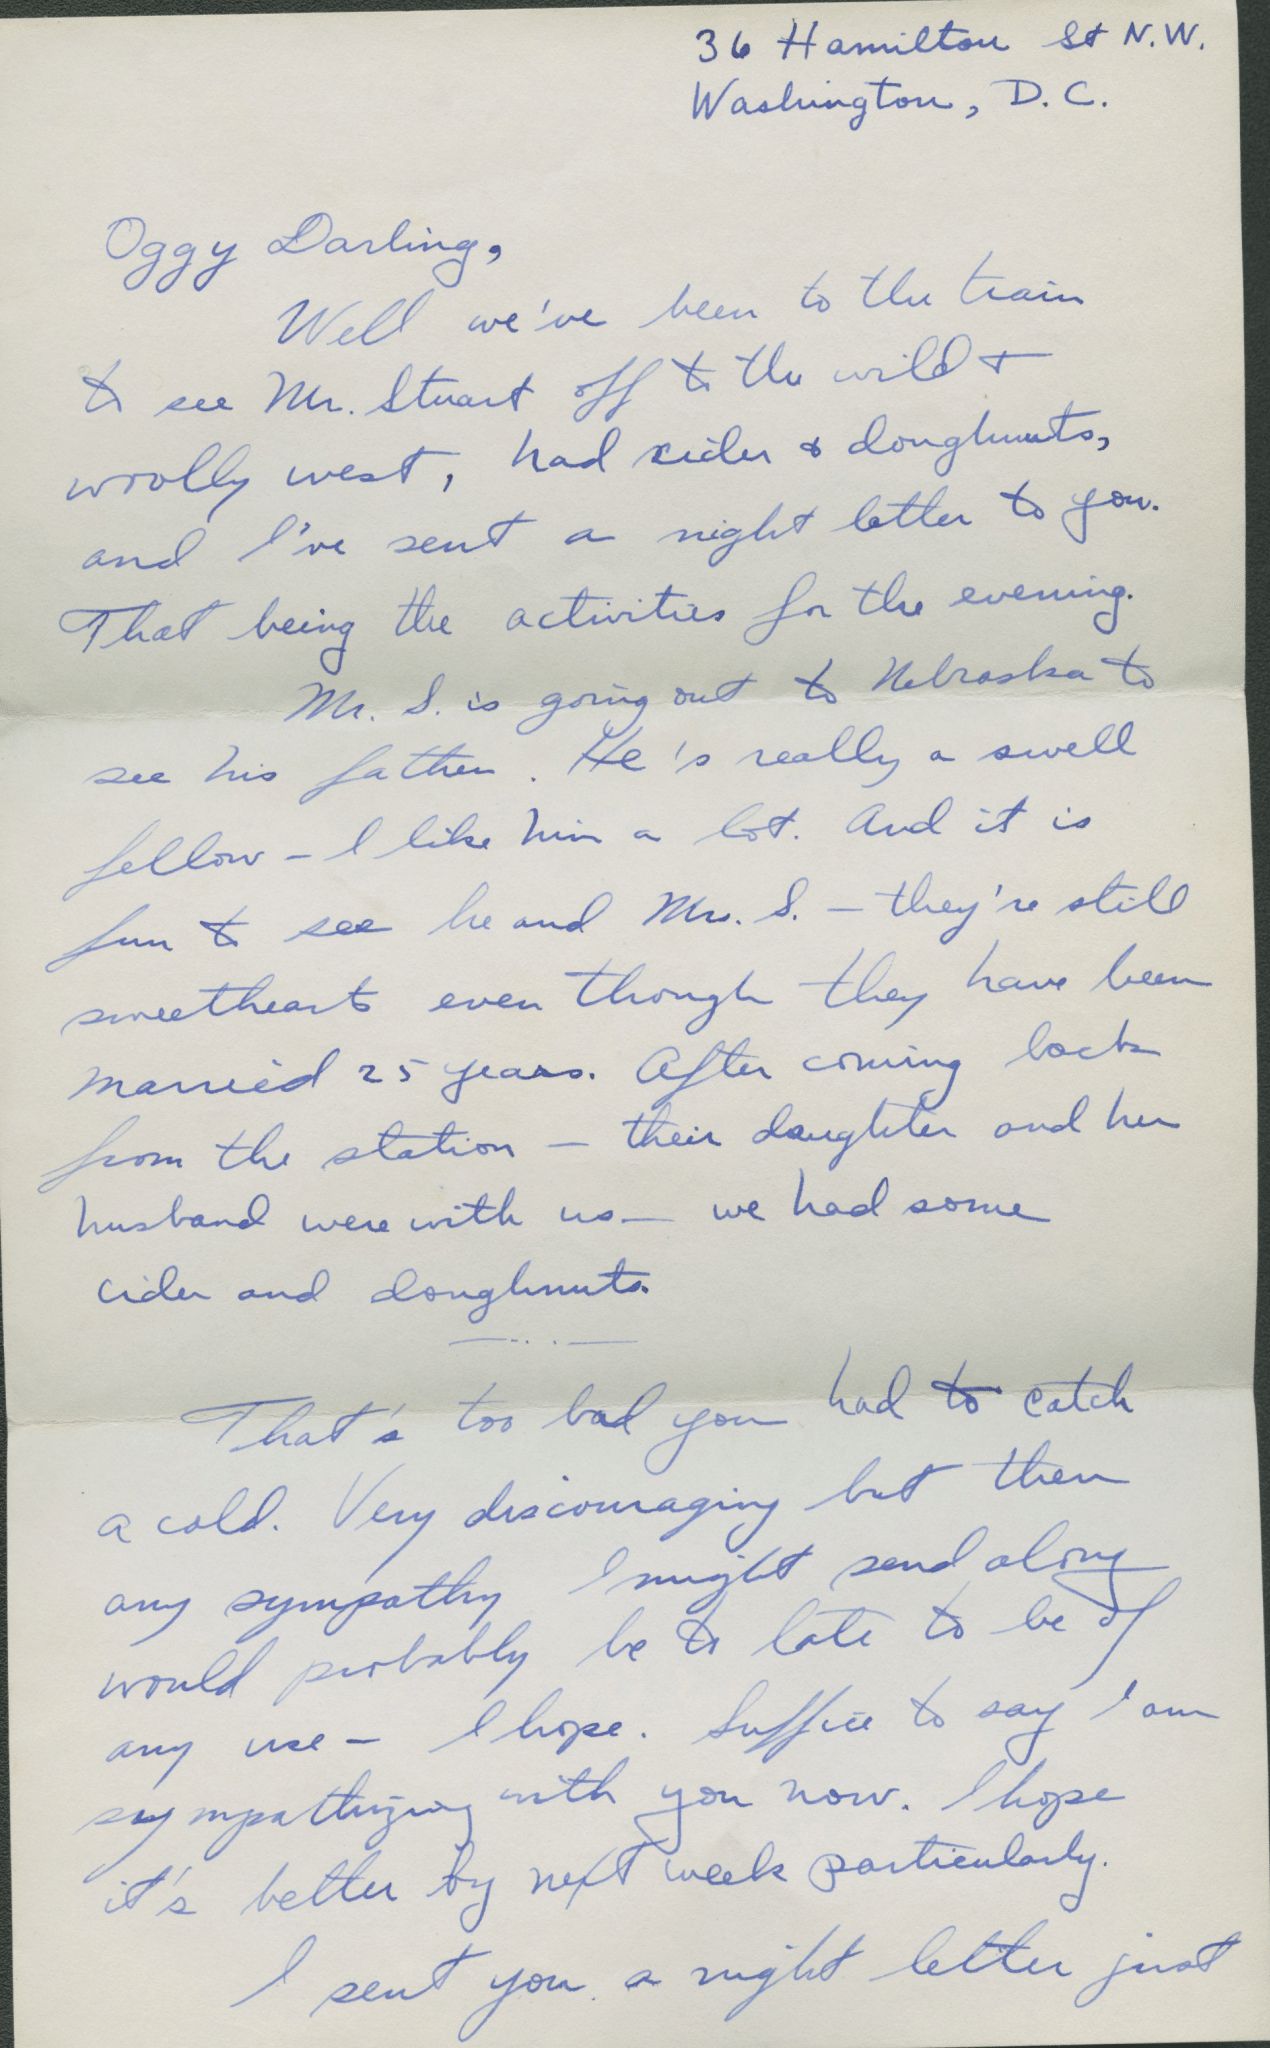 36 Hamilton St N.W.
Washington, D.C.
Oggy Darling,
Well we've been to the train
to see Mr. Stuart off to the wild +
woolly west, had cider & doughnuts,
and I've sent a night letter to you.
That being the activities for the evening.
Mr. S. is going out to Nebraska to
see his father. He's really a swell
fellow - I like him a lot. And it is
fun to see he and Mrs. S. - they're still
sweethearts even though they have been
married 25 years. After coming back
from the station - their daughter and her
husband were with us - we had some
cider and doughnuts.
That's too bad you had to catch
a cold. Very discouraging but then
any sympathy I might send along
would probably be to late to be of
any use - I hope. Suffice to say I am
sympathizing with you now. I hope
it's better by next week particularly.
I sent you a night letter just